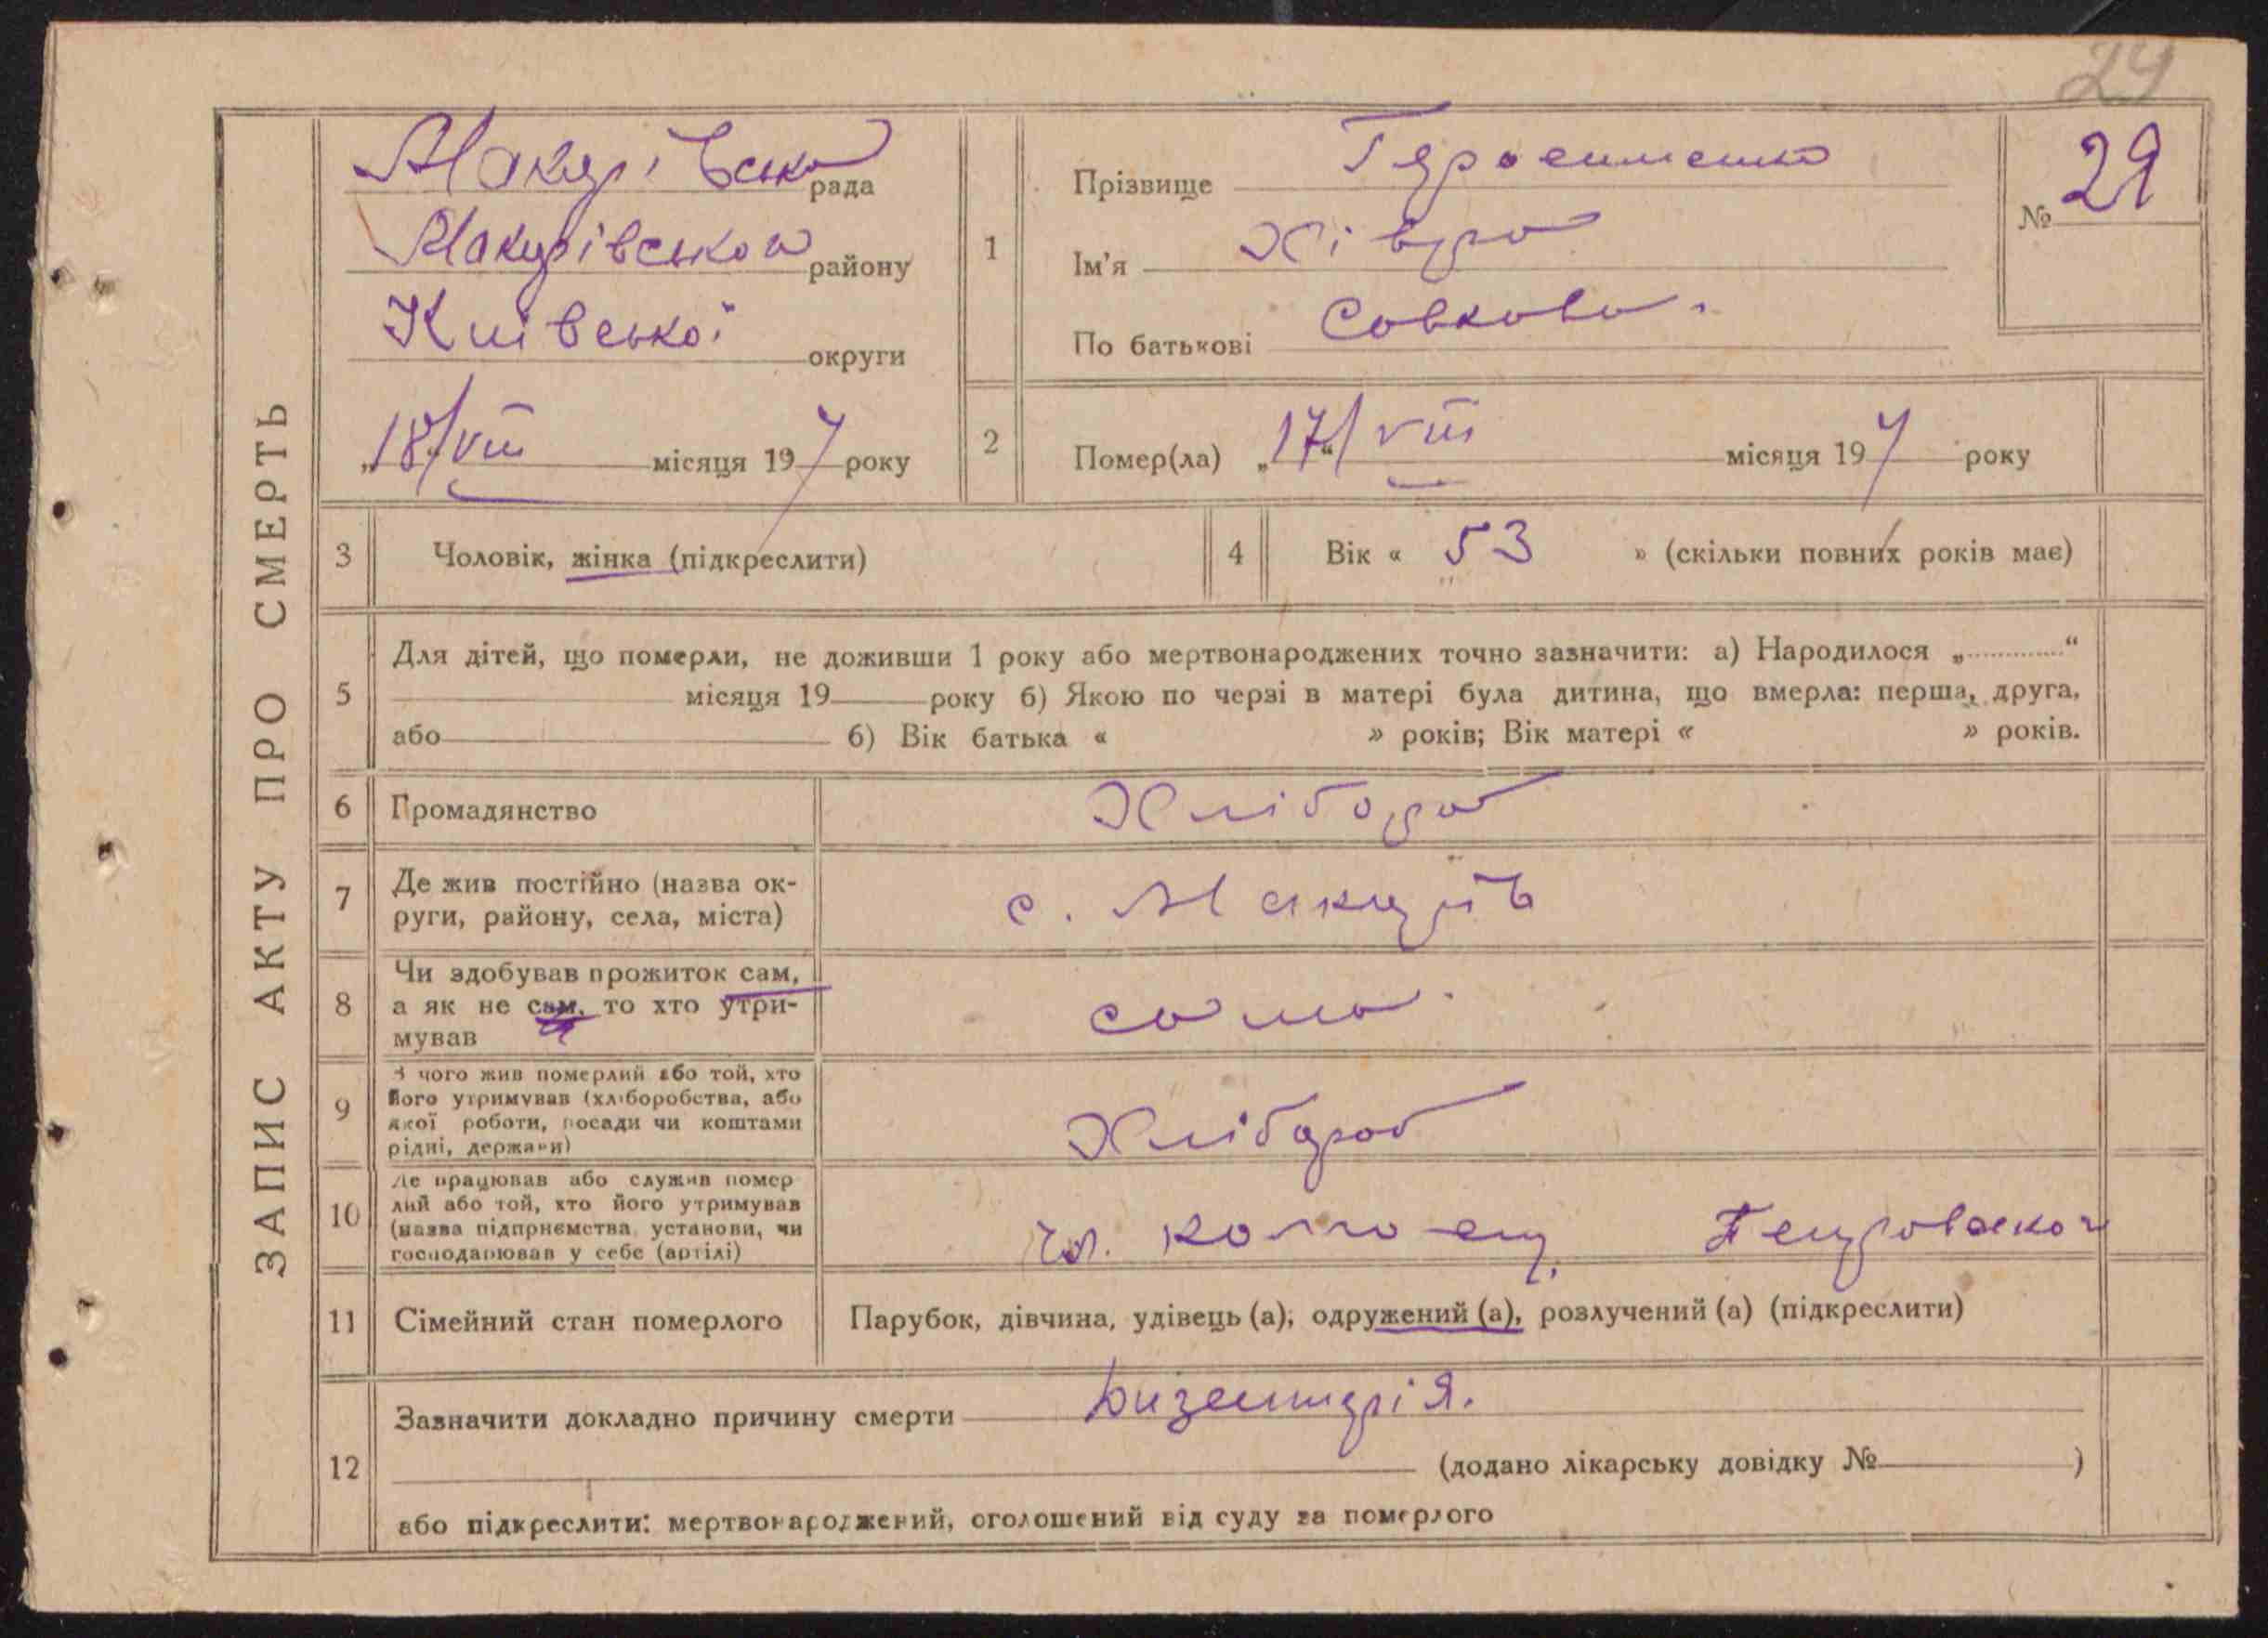 24
ЗАПИС АКТУ ПРО СМЕРТЬ
Макарівська рада
Макарівського району
Київської округи
„18/VIII місяця 19 року
1
Прізвище Герасименко
Ім'я Хівря
По батькові Совкова.
№ 29
2
Помер(ла) „17“/VIII місяця 19 року
3
Чоловік, жінка (підкреслити)
4
Вік « 53 » (скільки повних років має)
5
Для дітей, що померли, не доживши 1 року або мертвонароджених точно зазначити: а) Народилося „ “
місяця 19 року б) Якою по черзі в матері була дитина, що вмерла: перша, друга,
або б) Вік батька « » років; Вік матері « » років.
6
Громадянство
Хлібороб
7
Де жив постійно (назва ок-
руги, району, села, міста)
с. Макарів
8
Чи здобував прожиток сам,
а як не сам, то хто утри-
мував
сама.
9
З чого жив померлий або той, хто
його утримував (хліборобства, або
якої роботи, посади чи коштами
рідні, держави)
Хлібороб
10
Де працював або служив помер
лий або той, хто його утримував
(назва підприємства, установи, чи
господарював у себе (артілі)
11
Сімейний стан померлого
Парубок, дівчина, удівець (а), одружений (а), розлучений (а) (підкреслити)
12
Зазначити докладно причину смерти Дизентерія.
(додано лікарську довідку № )
або підкреслити: мертвонароджений, оголошений від суду за померлого